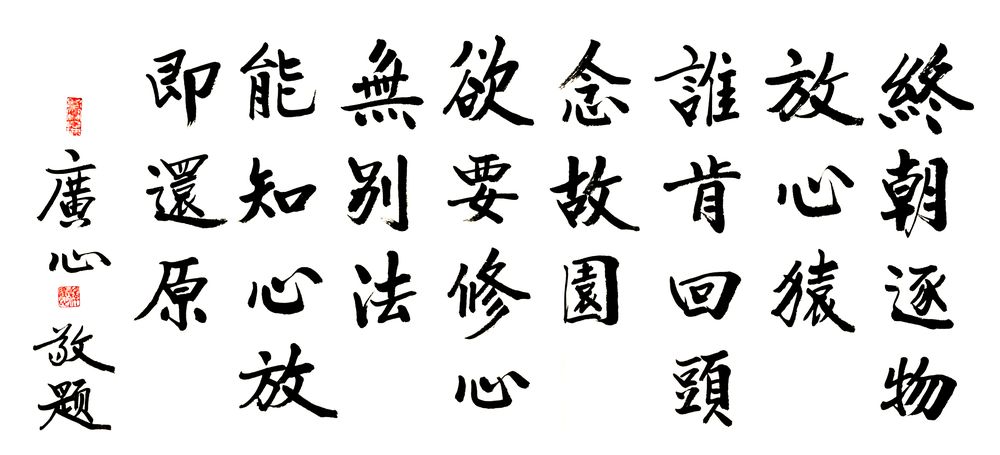 終朝逐物
放心猿
誰肯回頭
念故園
欲要修心
無別法
能知心放
即還原
廣心
敬題